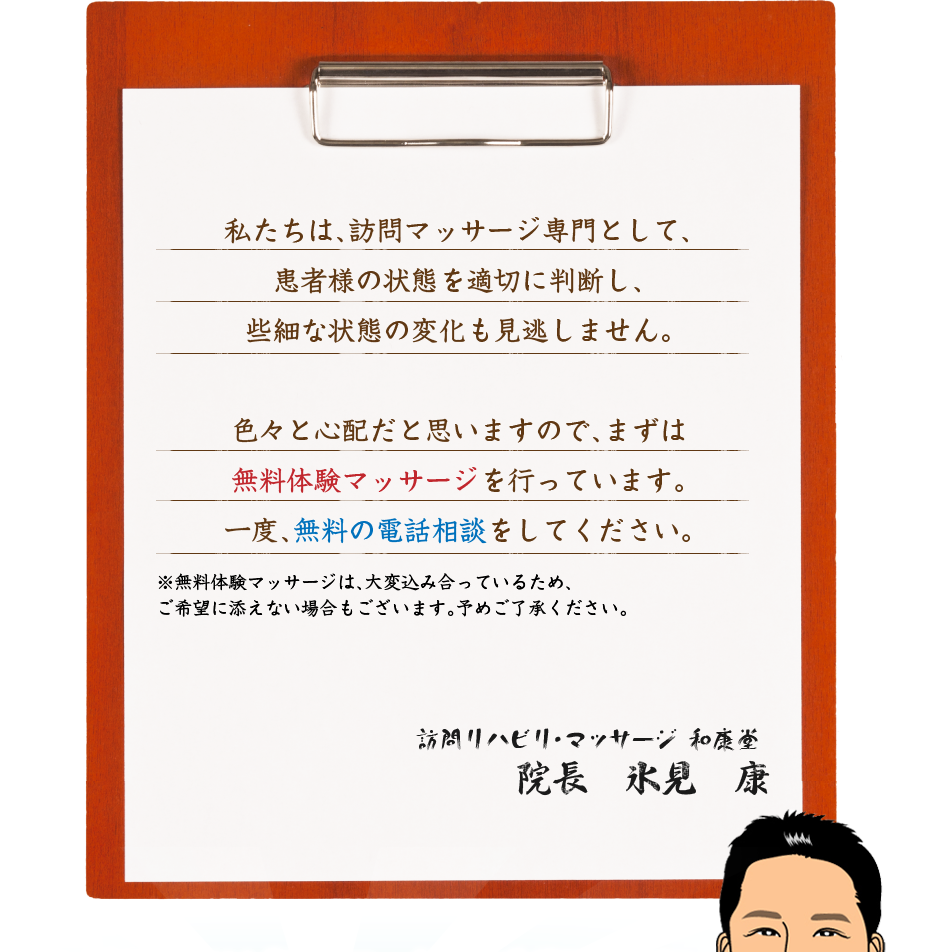 私たちは、訪問マッサージ専門として、
患者様の状態を適切に判断し、
些細な状態の変化も見逃しません。
色々と心配だと思いますので、まずは
無料体験マッサージを行っています。
一度、無料の電話相談をしてください。
※無料体験マッサージは、大変込み合っているため、
ご希望に添えない場合もございます。予めご了承ください。
訪問リハビリ・マッサージ 和康堂
院長 氷見 康